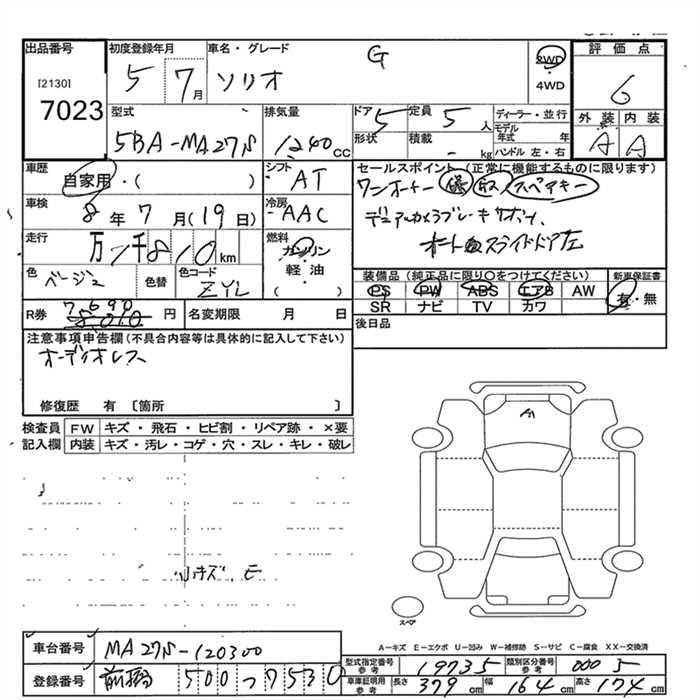 出品番号
[2130]
7023
初度登録年月
5 7月
車名・グレード
ソリオ G
2WD
4WD
評価点
6
外装 内装
A A
型式
5BA-MA27S
排気量
1240cc
ドア 5
形状
定員 5人
積載 - kg
ディーラー・並行
モデル年式 年
ハンドル 左・右
車歴
自家用・( )
シフト AT
セールスポイント (正常に機能するものに限ります)
ワンオーナー 保 取 スペアキー
デュアルカメラブレーキサポート
オート スライドドア左
車検
8年7月(19日)
冷房 AAC
走行
万 千810km
燃料
ガソリン
軽油
( )
色
ベージュ
色替
色コード
ZYL
装備品 (純正品に限り○をつけてください)
PS PW ABS エアB AW
SR ナビ TV カワ
新車保証書
有・無
R券
7,690
8010 円
名変期限 月 日
後日品
注意事項申告欄 (不具合内容等は具体的に記入して下さい)
オーディオレス
修復歴 有 [箇所 ]
検査員 FW キズ・飛石・ヒビ割・リペア跡・×要
記入欄 内装 キズ・汚レ・コゲ・穴・スレ・キレ・破レ
小キズ、E
スペアー
A-キズ E-エクボ U-凹み W-補修跡 S-サビ C-腐食 XX-交換済
車台番号 MA27S-120300
登録番号 前橋 500 つ 7530
型式指定番号 参考 19735
類別区分番号 参考 0005
車庫証明用 参考 長さ 379cm 幅 164cm 高さ 174cm